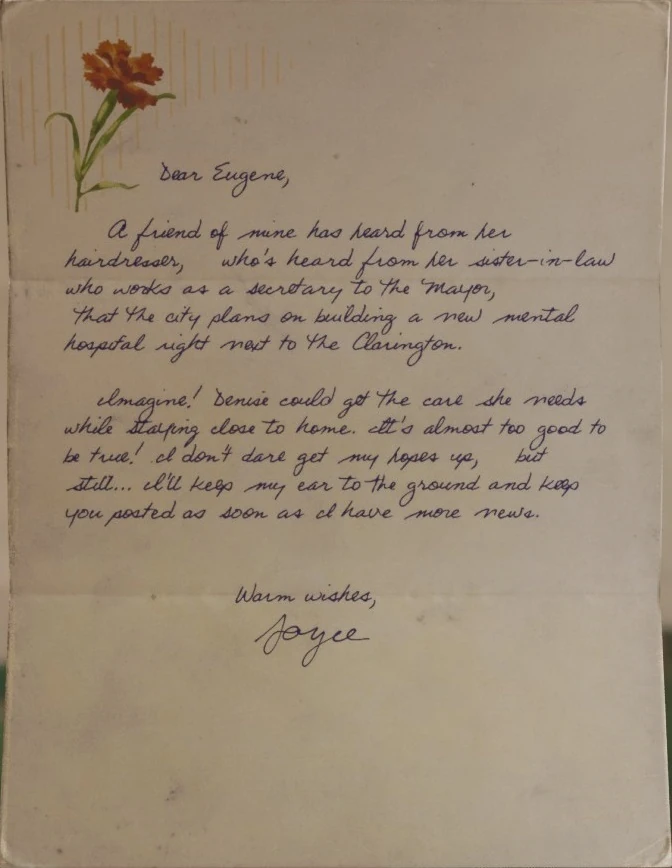 Dear Eugene,
A friend of mine has heard from her
hairdresser, who's heard from her sister-in-law
who works as a secretary to the Mayor,
that the city plans on building a new mental
hospital right next to the Clarington.
Imagine! Denise could get the care she needs
while staying close to home. It's almost too good to
be true! I don't dare get my hopes up, but
still... I'll keep my ear to the ground and keep
you posted as soon as I have more news.
Warm wishes,
Joyce